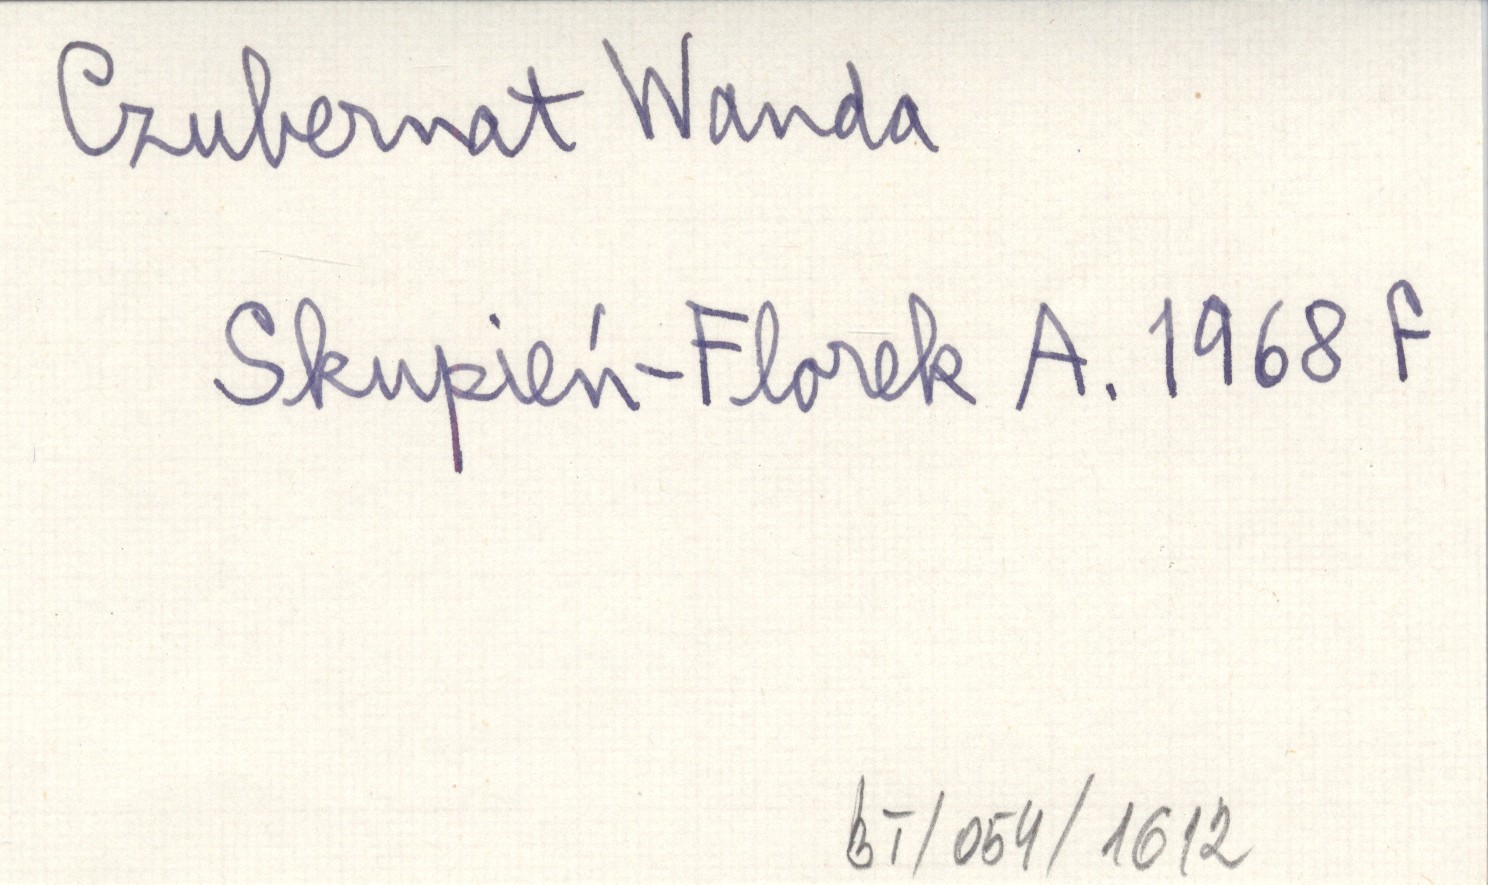 Czubernat Wanda
Skupień-Florek A. 1968 F
BT/054/1612